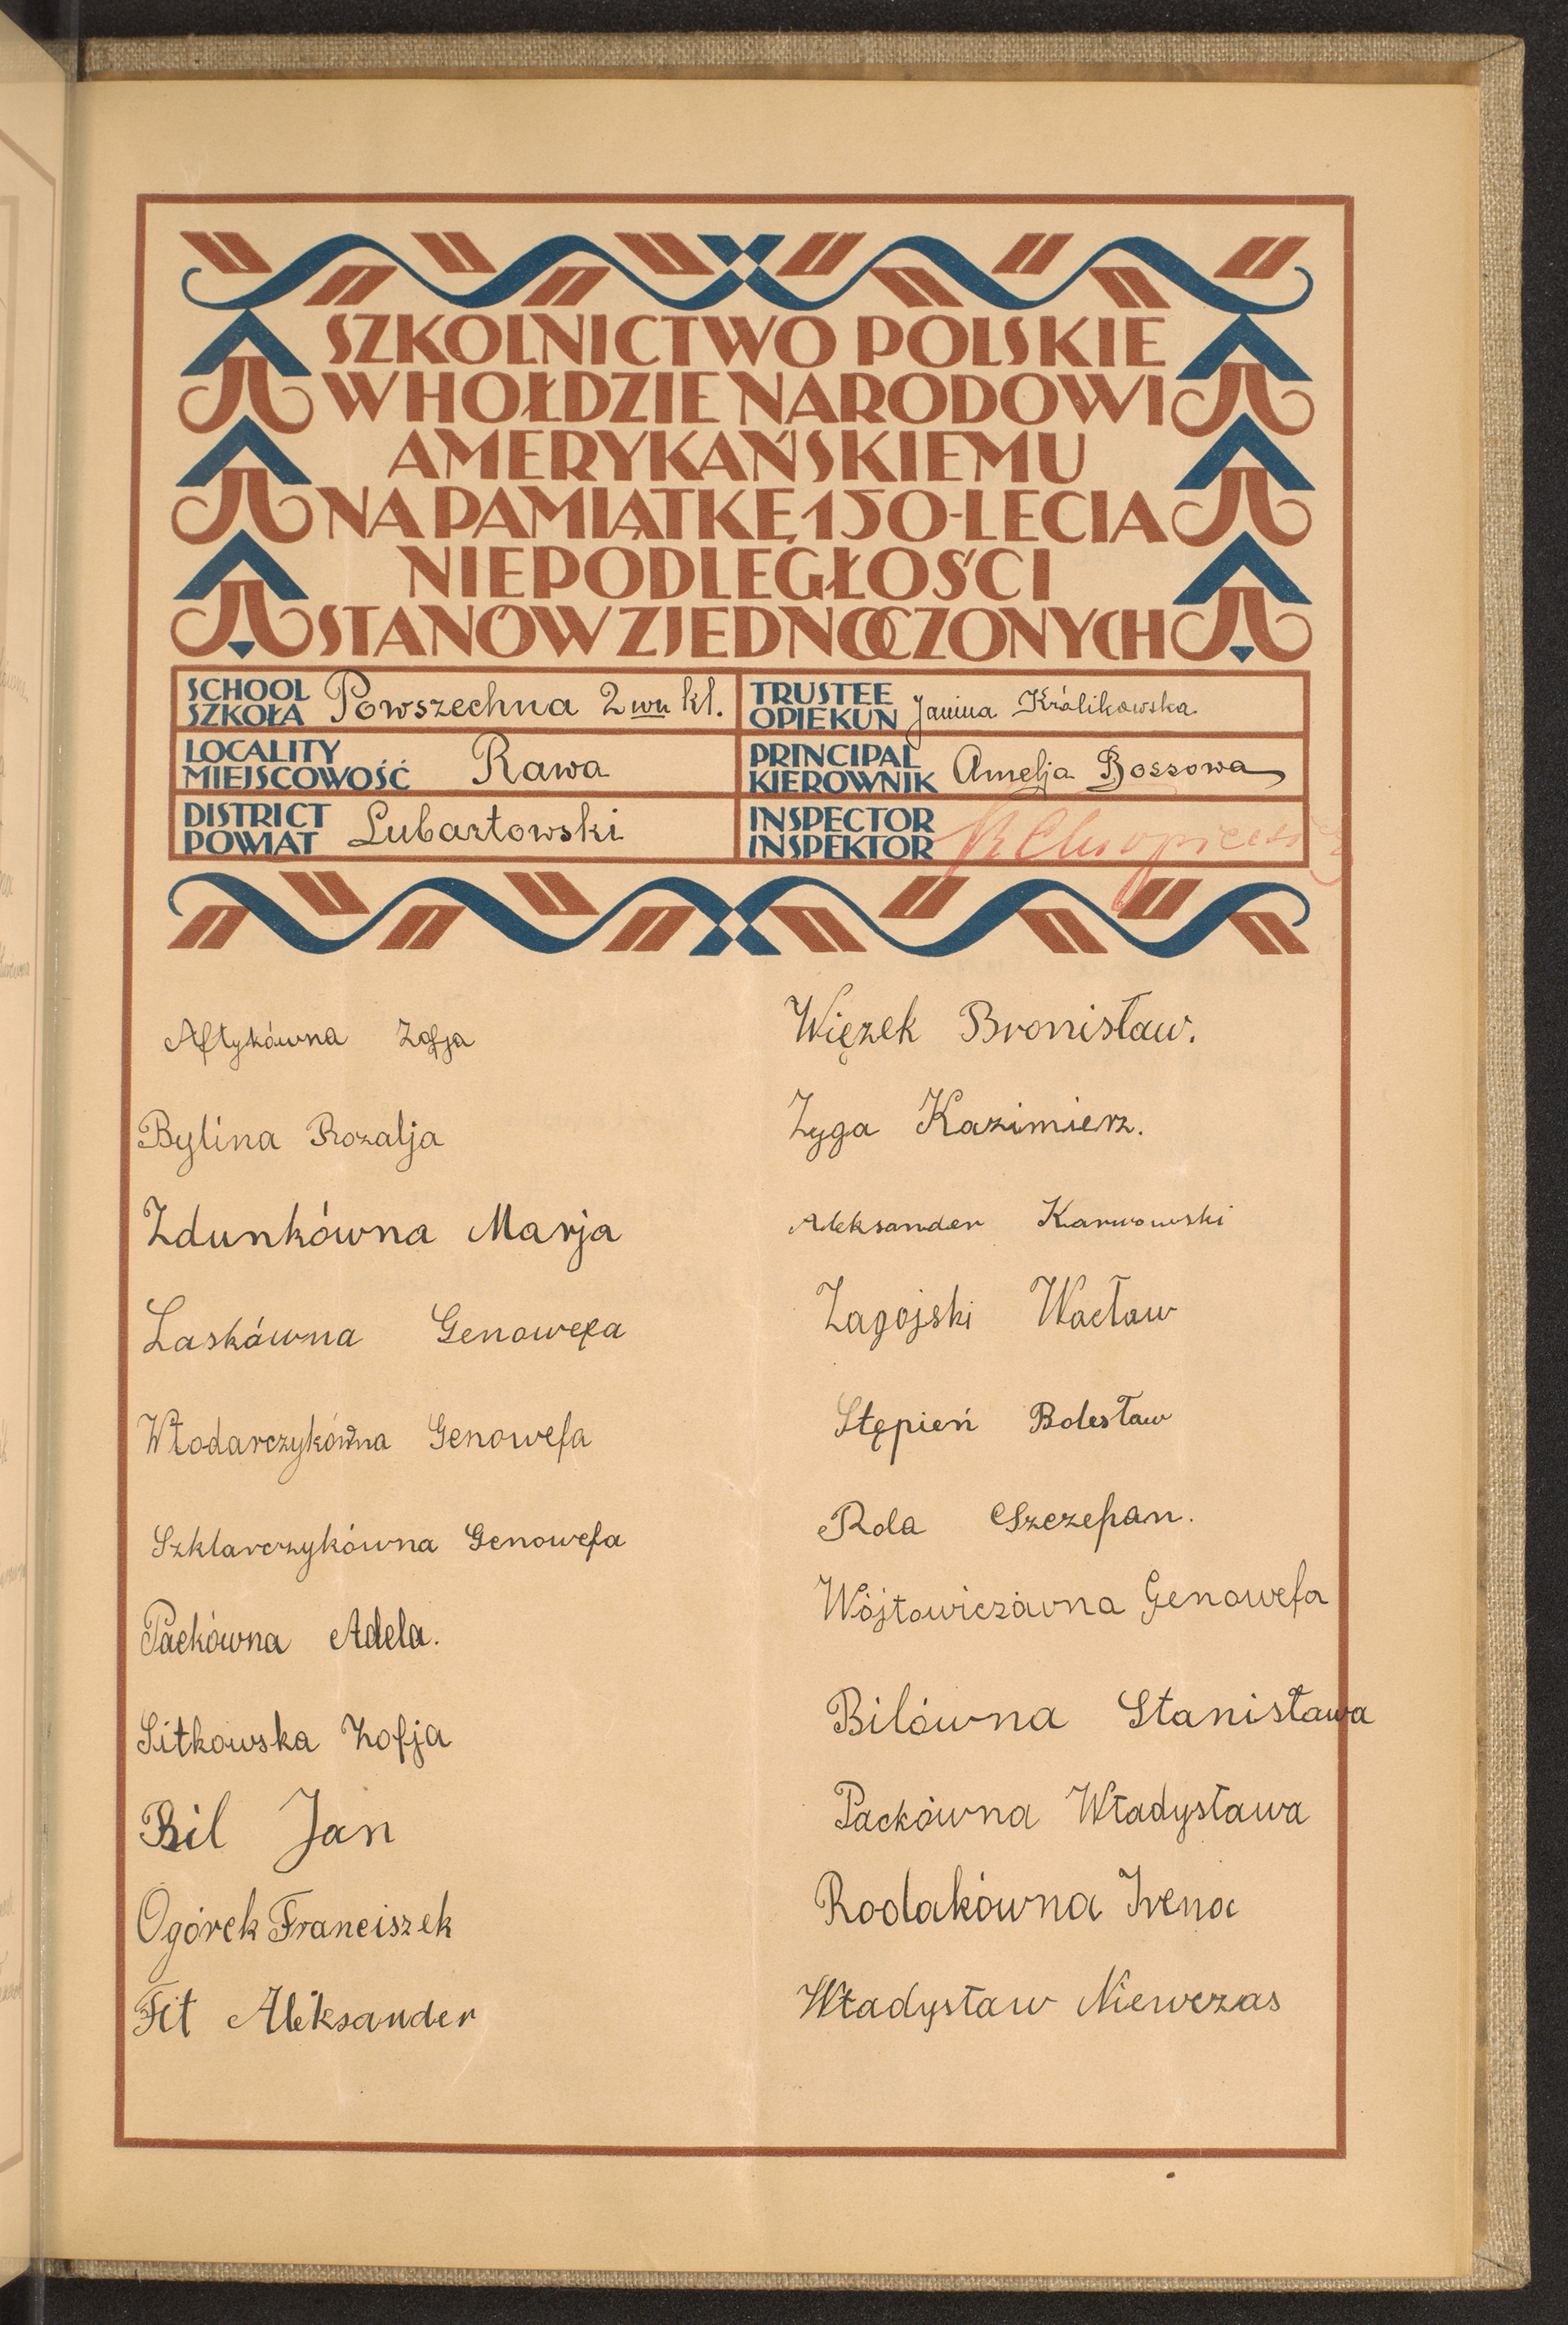 SZKOLNICTWO POLSKIE
W HOŁDZIE NARODOWI
AMERYKAŃSKIEMU
NA PAMIĄTKĘ 150-LECIA
NIEPODLEGŁOŚCI
STANÓW ZJEDNOCZONYCH
SCHOOL
SZKOŁA
Powszechna 2 wu kl.
TRUSTEE
OPIEKUN
Janina Królikowska
LOCALITY
MIEJSCOWOŚĆ
Rawa
PRINCIPAL
KIEROWNIK
Amelja Bossowa
DISTRICT
POWIAT
Lubartowski
INSPECTOR
INSPEKTOR
Aftykówna Zofja
Bylina Rozalja
Zdunkówna Marja
Laskówna Genowefa
Włodarczykówna Genowefa
Szklarczykówna Genowefa
Packówna Adela.
Sitkowska Zofja
Bil Jan
Ogórek Franciszek
Fit Aleksander
Więzek Bronisław.
Zyga Kazimierz.
Aleksander Karwowski
Zagojski Wacław
Stępień Bolesław
Rola Szczepan.
Wójtowiczówna Genowefa
Bilówna Stanisława
Packówna Władysława
Rodakówna Irena
Władysław Niewczas